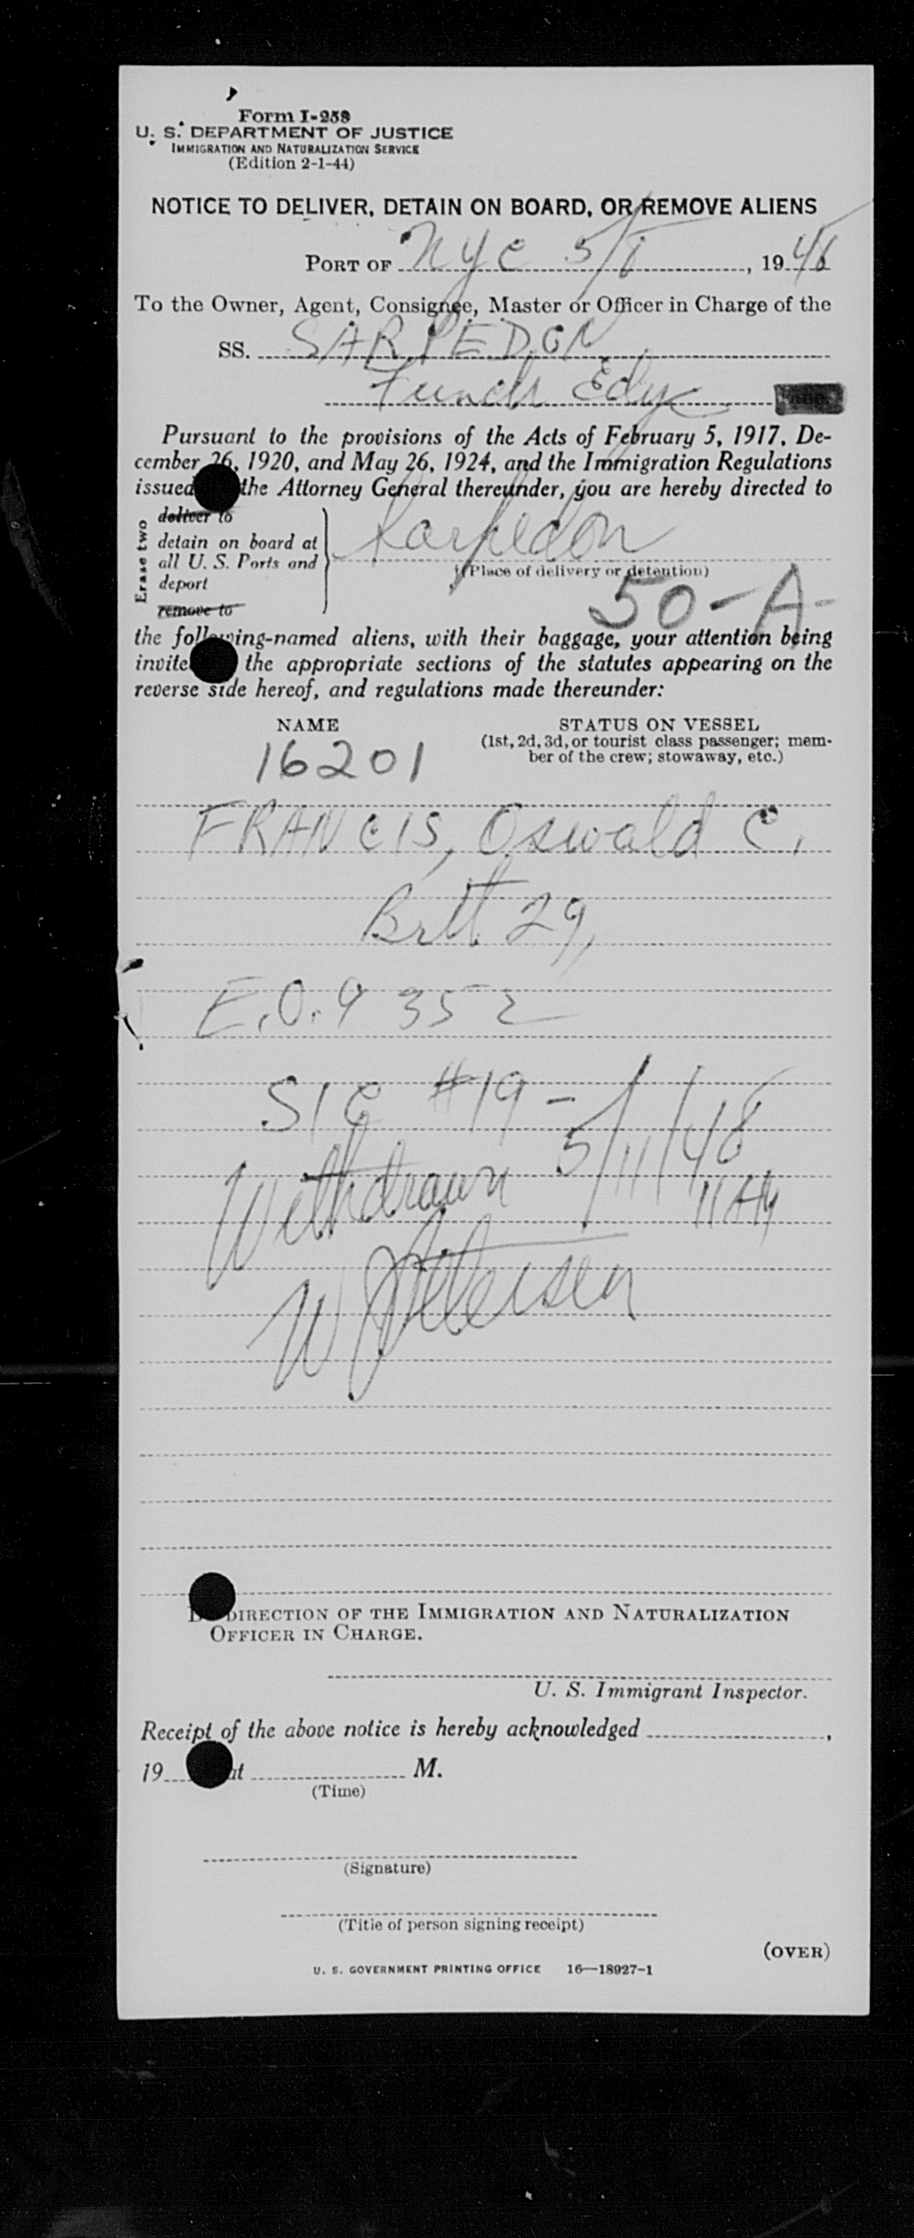 Form I-259
U. S. DEPARTMENT OF JUSTICE
IMMIGRATION AND NATURALIZATION SERVICE
(Edition 2-1-44)
NOTICE TO DELIVER, DETAIN ON BOARD, OR REMOVE ALIENS
PORT OF NYC 5/8, 1948
To the Owner, Agent, Consignee, Master or Officer in Charge of the
SS. SARPEDON
Funch Edye
Pursuant to the provisions of the Acts of February 5, 1917, De-
cember 26, 1920, and May 26, 1924, and the Immigration Regulations
issued the Attorney General thereunder, you are hereby directed to
Erase two
deliver to
detain on board at
all U. S. Ports and
deport
remove to
Sarpedon
(Place of delivery or detention)
50-A-
the following-named aliens, with their baggage, your attention being
invite the appropriate sections of the statutes appearing on the
reverse side hereof, and regulations made thereunder:
NAME STATUS ON VESSEL
(1st, 2d, 3d, or tourist class passenger; mem-
ber of the crew; stowaway, etc.)
16201
FRANCIS, Oswald C.
Brit 29,
E.O. 9352
SIC #19-
Withdrawn 5/11/48
11 AM
W Petersen
DIRECTION OF THE IMMIGRATION AND NATURALIZATION
OFFICER IN CHARGE.
U. S. Immigrant Inspector.
Receipt of the above notice is hereby acknowledged ,
19 at M.
(Time)
(Signature)
(Title of person signing receipt)
(OVER)
U. S. GOVERNMENT PRINTING OFFICE 16—18927-1